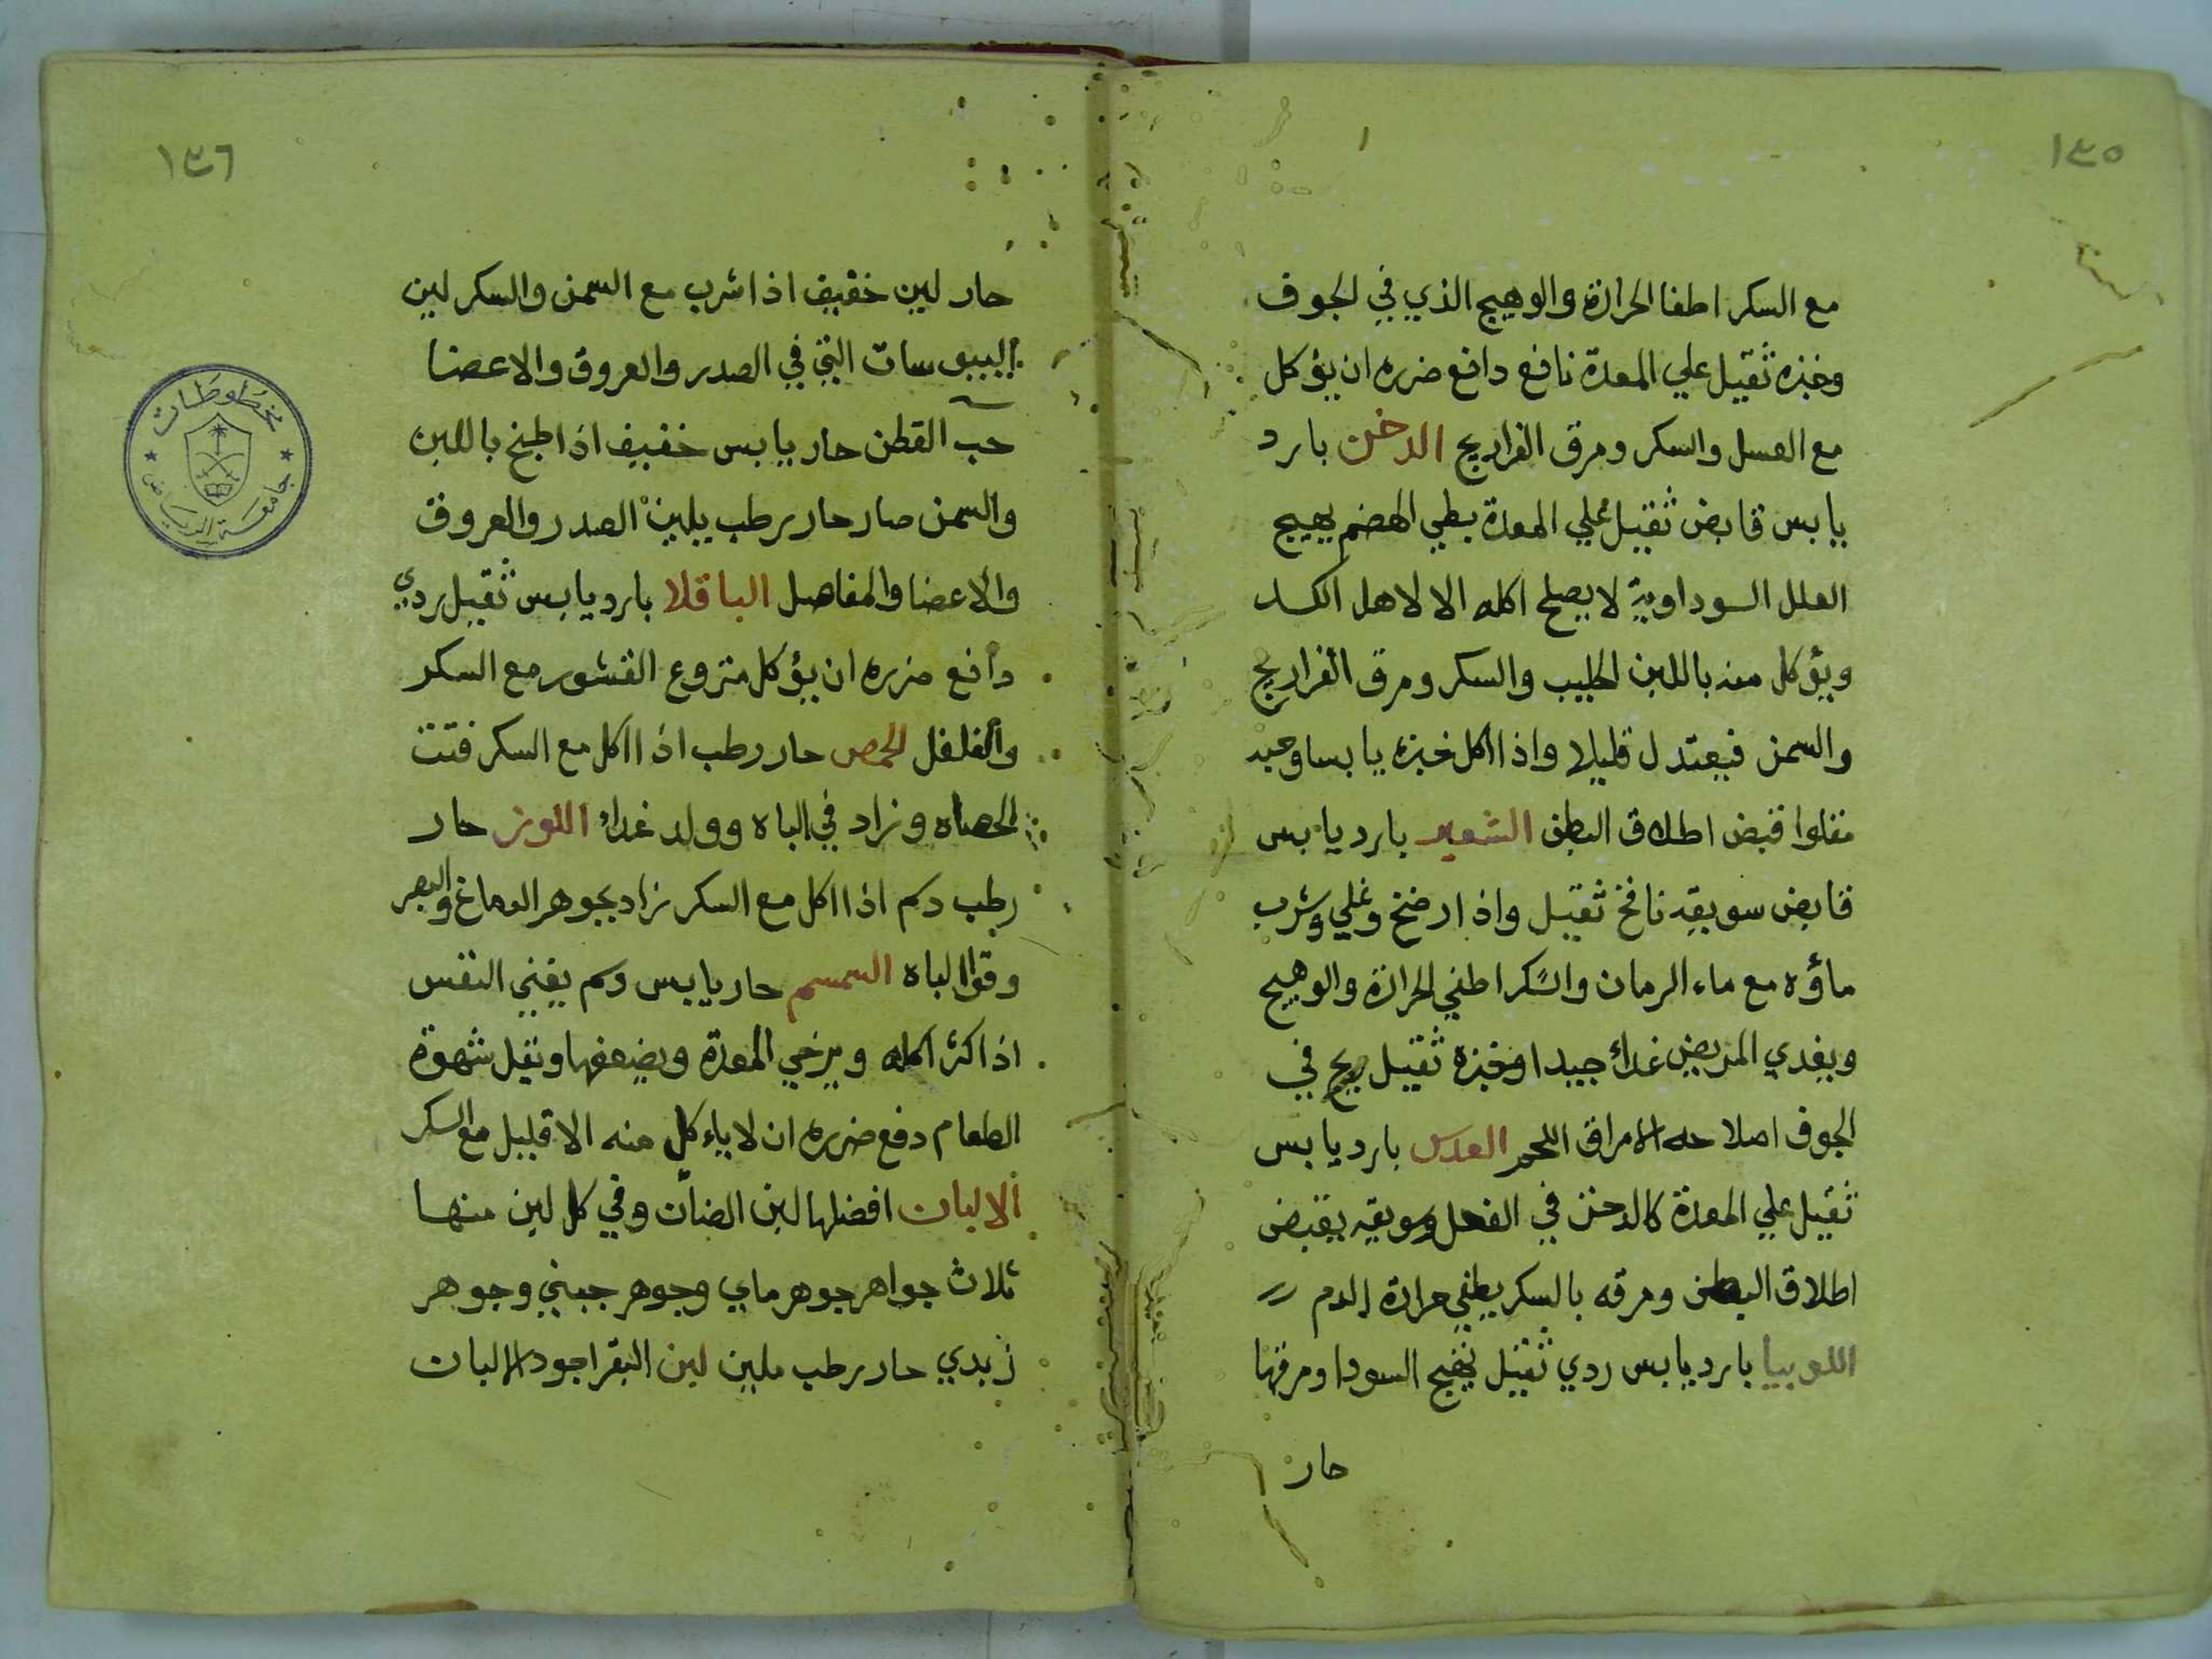 ١٣٥
مع السكر اطفا الحرارة والوهيج الذي في الجوف
وخبزه ثقيل علي المعدة نافع دافع ضرره ان يؤكل
مع العسل والسكر ومرق الفراريج الدخن بارد
يابس قابض ثقيل علي المعدة بطي الهضم يهيج
العلل السوداوية لا يصلح اكله الا لاهل الكد
ويؤكل منه باللبن الحليب والسكر ومرق الفراريج
والسمن فيعتدل قليلا واذا اكل خبزه يابسا وحبه
مقلوا قبض اطلاق البطن الشعير بارد يابس
قابض سويقه نافخ ثقيل واذا رضخ وغلي وشرب
ماؤه مع ماء الرمان والسكر اطفي الحرارة والوهيج
ويغدي المريض غداء جيدا وخبزه ثقيل ريح في
الجوف اصلاحه الامراق اللحم العدس بارد يابس
ثقيل علي المعدة كالدخن في الفعل وسويقه يقبض
اطلاق البطن ومرقه بالسكر يطفي حرارة الدم
اللوبيا بارد يابس ردي ثقيل يهيج السودا ومرقها
حار
١٣٦
حار لين خفيف اذا شرب مع السمن والسكر لين
اليبوسات التي في الصدر والعروق والاعضا
حب القطن حار يابس خفيف اذا طبخ باللبن
والسمن صار حار رطب يلين الصدر والعروق
والاعضا والمفاصل الباقلا بارد يابس ثقيل ردي
دافع ضرره ان يؤكل منزوع القشور مع السكر
والفلفل الحمص حار رطب اذا اكل مع السكر فتت
الحصاه وزاد في الباه وولد غداء اللوز حار
رطب دسم اذا اكل مع السكر زاد بجوهر الدماغ والبصر
وقوا الباه السمسم حار يابس دسم يغني النفس
اذا كثر اكله ويرخي المعدة ويضعفها ويقل شهوة
الطعام دفع ضرره ان لا ياءكل منه الا قليل مع السكر
الالبان افضلها لبن الضان وفي كل لبن منها
ثلاث جواهر جوهر ماي وجوهر جبني وجوهر
زبدي حار رطب ملين لبن البقر اجود الالبان
مخطوطات
جامعة الرياض